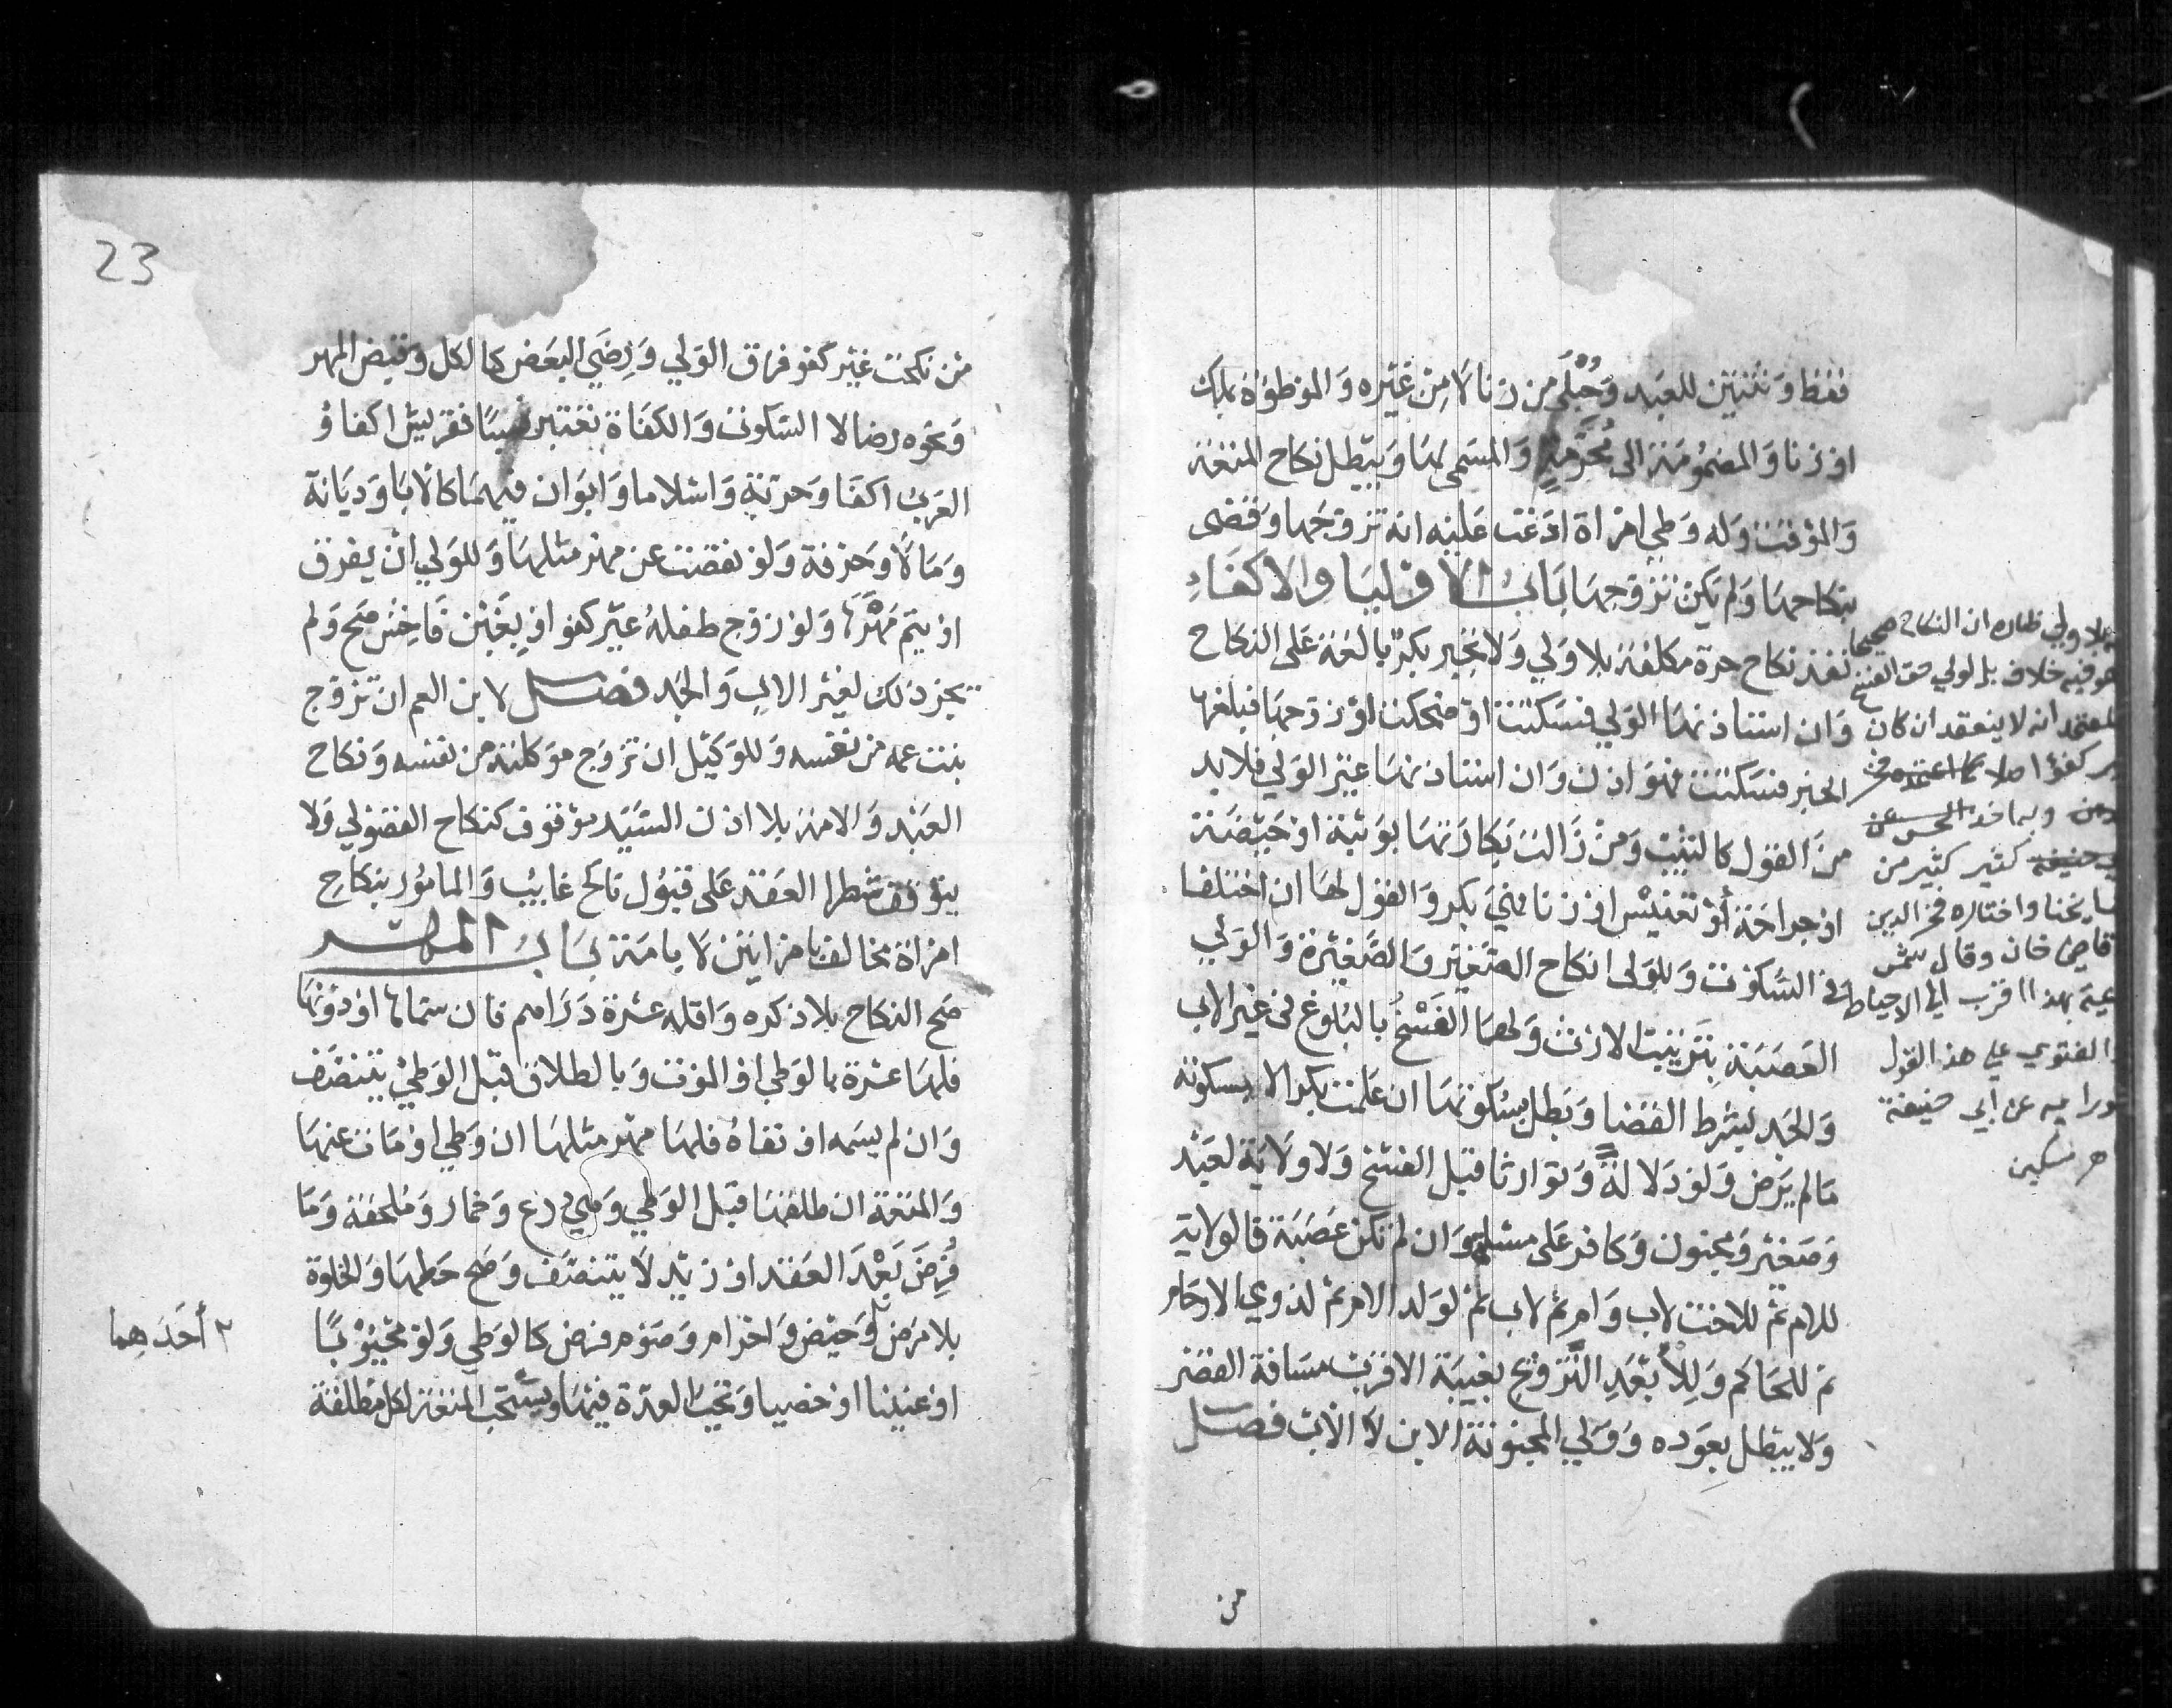 فقط وثنتين للعبد وحبلى من زنا لا من غيره والموطوءة بملك
او زنا والمضمومة الى محرمة والمسمى لها وبطل نكاح المتعة
والموقت وله وطي امراة ادعت عليه انه تزوجها وقضى
بنكاحها ولم يكن تزوجها باب الاوليا والاكفاء
نفذ نكاح حرة مكلفة بلا ولي ولا تجبر بكر بالغة على النكاح
وان استاذنها الولي فسكتت او ضحكت او زوجها فبلغها
الخبر فسكتت فهو اذن وان استاذنها غير الولي فلا بد
من القول كالثيب ومن زالت بكارتها بوثبة او حيضة
او جراحة أو تعنيس او زنا فهي بكر والقول لها ان اختلفا
في السكوت وللولى انكاح الصغير والصغيرة والولي
العصبة بترتيب الارث ولهما الفسخ بالبلوغ في غير الاب
والجد بشرط القضا وبطل بسكوتها ان علمت بكرا لا بسكوته
مالم يرض ولو دلالة وتوارثا قبل الفسخ ولا ولاية لعبد
وصغير ومجنون وكافر على مسلمة وان لم تكن عصبة فالولاية
للام ثم للاخت لاب وام ثم لاب ثم لولد الام ثم لذوي الارحام
ثم للحاكم وللأبعد التزويج بغيبة الاقرب مسافة القصر
ولا يبطل بعوده وولي المجنونة الابن لا الاب فصل
من
بلا ولي ظاهره ان النكاح صحيحا
هو فيه خلاف بل لولي حق الفسخ
المعتمد انه لا ينعقد ان كان
كفؤا اصلا كما اعتمده
وبه اخذ الحسن عن
حنيفة كثير كثير من
مشايخنا واختاره فخر الدين
قاضي خان وقال شمس
بهذا اقرب الي الاحتياط
الفتوي علي هذا القول
عن أبي حنيفة
مسكين
23
من نكحت غير كفو فرق الولي ورضي البعض كالكل وقبض المهر
ونحوه رضا لا السكوت والكفاة تعتبر نسبا فقريش اكفاؤ
العرب اكفا وحرية واسلاما وابوان فيهما كالابا وديانة
ومالا وحرفة ولو نقصت عن مهر مثلها وللولي ان يفرق
او يتم مهرها ولو زوج طفله غير كفو او بغبن فاحش صح ولم
يجز ذلك لغير الاب والجد فصل لابن العم ان تزوج
بنت عمه من نفسه وللوكيل ان تزوج موكلته من نفسه ونكاح
العبد والامة بلا اذن السيد موقوف كنكاح الفضولي ولا
يتوقف شطر العقد على قبول ناكح غايب والمامور بنكاح
امراة مخالف بامراتين لا بامة باب المهر
صح النكاح بلا ذكره واقله عشرة دراهم فان سماها او دونها
فلها عشرة بالوطي او الموت وبالطلاق قبل الوطي يتنصف
وان لم يسمه او نفاه فلها مهر مثلها ان وطي او مات عنها
والمتعة ان طلقها قبل الوطي وهي درع وخمار وملحفة وما
فرض بعد العقد او زيد لا يتنصف وصح حطها والخلوة
بلا مرض٢ وحيض واحرام وصوم فرض كالوطي ولو مجبوبا
او عنينا او خصيا وتجب العدة فيها ويستحب المتعة لكل مطلقة
٢ أحدهما